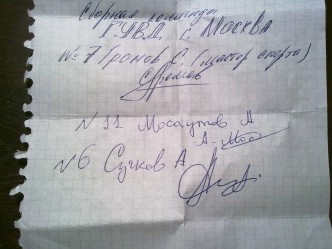 Сборная команды
ГУВД г. Москва
№ 7 Громов С. (мастер спорта)
Громов
N 11 Мосаутов А
А-Мос
N 6 Сучков А